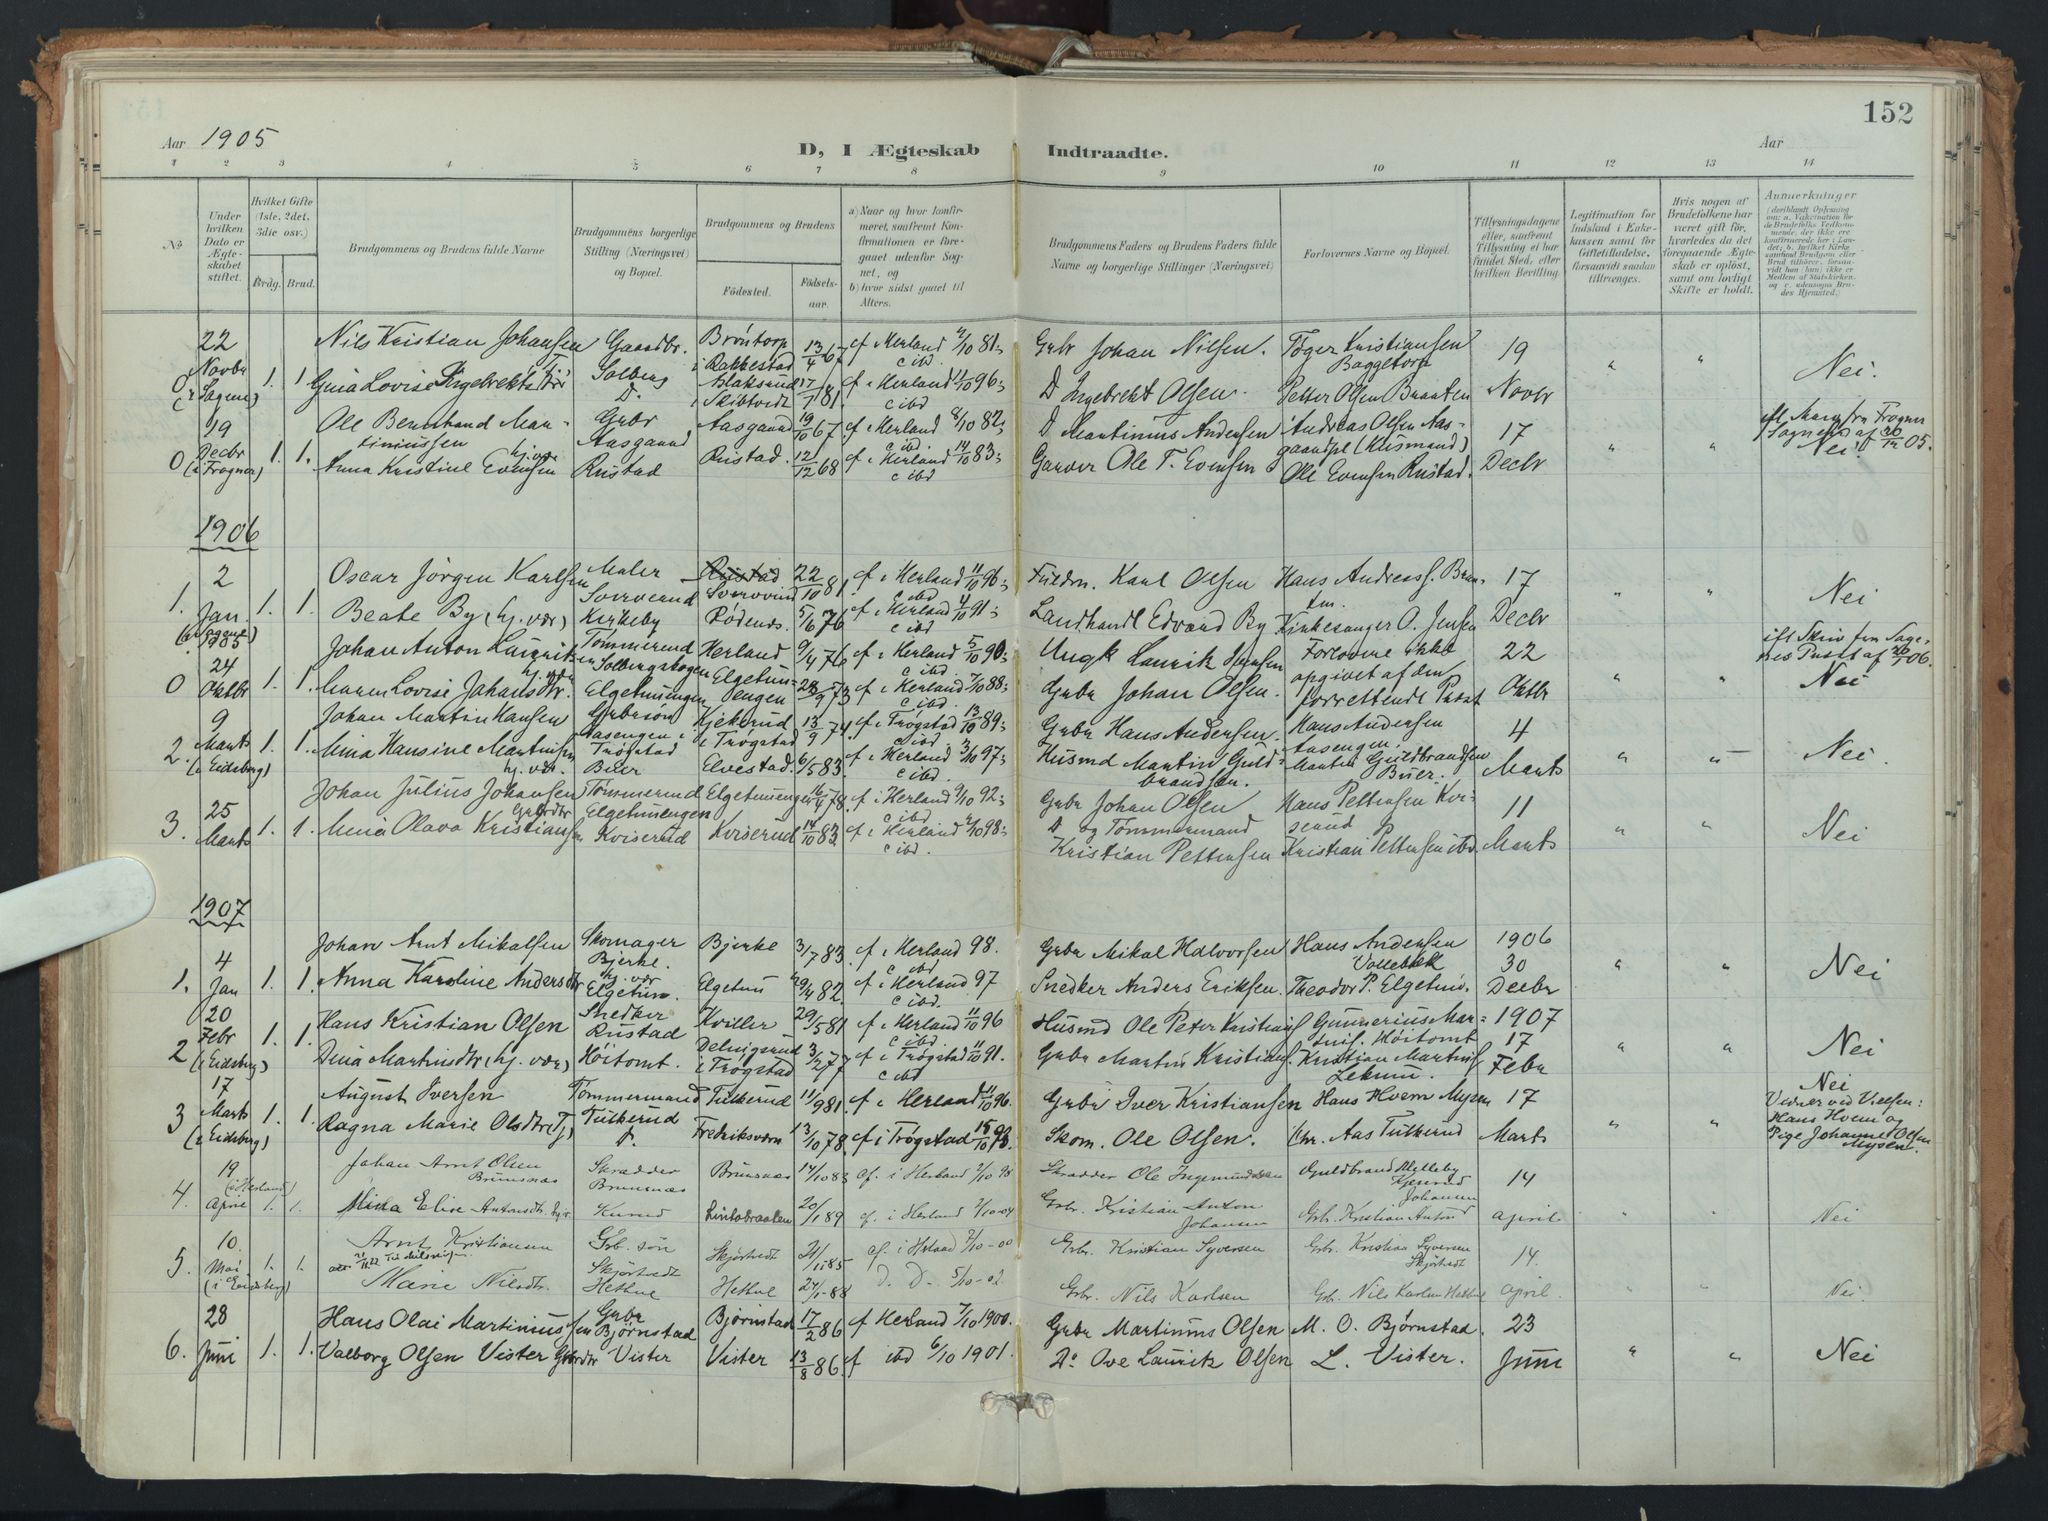 152
Aar 1905
D, I Ægteskab Indtraadte.
Aar
1 2 3 4 5 6 7 8 9 10 11 12 13 14
No
Under hvilken Dato er Ægteskabet stiftet.
Hvilket Gifte (1ste, 2det, 3die osv.)
Brdg. Brud.
Brudgommens og Brudens fulde Navne
Brudgommens borgerlige Stilling (Næringsvei) og Bopæl.
Brudgommens og Brudens
Fødested. Fødselsaar.
a) Naar og hvor konfirmeret, saafremt Konfirmationen er foregaaet udenfor Sognet, og
b) hvor sidst gaaet til Alters.
Brudgommens Faders og Brudens Faders fulde Navne og borgerlige Stillinger (Næringsvei)
Forlovernes Navne og Bopæl.
Tillysningsdagene eller, saafremt Tillysning ei har fundet Sted, efter hvilken Bevilling.
Legitimation for Indskud i Enkekassen samt for Giftetilladelse, forsaavidt saadan tiltrænges.
Hvis nogen af Brudefolkene har været gift før, hvorledes da det foregaaende Ægteskab er opløst, samt om lovligt Skifte er holdt.
Anmerkninger
22 Novbr 0 1. 1 Nils Kristian Johansen Gaardbr. Solberg Brøntorp i Rakkestad 13/4 67 cf i Herland 81 c ibd Grbr Johan Nilsen. Tøger Kristiansen Baggetorp 19 " " Nei.
Gina Lovise Ingebrektsdtr D. i Skibtvedt 17/7 81. cf i Herland 96 c ibd D Ingebrekt Olsen. Petter Olsen Braaten Novbr
19 Decbr 0 (i Frogner) 1. 1. Ole Bernhard Martiniussen Grbr Aasgaard Aasgaard 19/10 67 cf i Herland 8/10 82 c ibd. D Martinius Andersen Andreas Olsen Aasgaardpl (Husmand) 17 " " Nei
Anna Kristine Evensen hj.vær Rustad Rustad. 12/12 68 cf i Herland 14/10 83 c ibd Garver Ole T. Evensen Ole Evensen Rustad. Decbr
1906
2 Jan 1. 1. 1. Oscar Jørgen Karlsen Maler 22/10 81. cf i Herland 11/10 96 c ibd Karl Olsen 17 " " Nei
Beate By (hj. vær) Kirkeby Rødenes 5/6 76 cf i Herland 4/10 91 c ibd. Landhandl Edvard By Kirkesanger O. Jensen Decbr
1905
24 Oktbr 0 1. 1. Johan Anton Lauritzen Tømmermd Solbergskogen Herland 9/4 76 cf i Herland 5/10 90 c ibd. Ungk Laurik Jensen Forlovere ikke opgivet af den forrettende Præst 22 " " Nei
Maren Lovise Johansdtr. hj. vær Elgetunengen Elgetunengen 28/9 73 cf i Herland 7/10 88 c ibd. Grbr Johan Olsen. Oktbr
9 Marts 2. (i Eidsberg) 1. 1. Johan Martin Hansen Grbrsøn Aasengen i Trøgstad Kjekerud i Trøgstad 13/9 74. cf i Trøgstad 13/10 89 c ibd Grbr Hans Andersen. Hans Andersen Aasengen. 4 " " Nei
Mina Hansine Martinsen hj. vær. Buer Elvestad. 6/5 83. cf i Herland 3/10 97 c ibd. Husmd Martin Guldbrandsen. Martin Guldbrandsen Buer. Marts
25 Marts 3. 1. 1. Johan Julius Johansen Tømmermd Elgetunengen Elgetunengen 16/4 78. cf i Herland 9/10 92 c ibd Grbr Johan Olsen Hans Pettersen Kviserud 11 " " Nei
Mina Olava Kristiansen Grbrdtr Kviserud Kviserud 14/10 83. cf i Herland 2/10 98 c ibd. D og Tømmermand Kristian Pettersen Kristian Pettersen ibd. Marts
1907
4 Jan 1. 1. 1. Johan Arnt Mikalsen Skomager Bjerke. Bjerke 3/7 83. cf i Herland 98. c ibd Grbr Mikal Halvorsen Hans Andersen Vallebæk 1906 30 " " Nei
Anna Karoline Andersdtr hj. vær Elgetun. Elgetun 29/4 82. cf i Herland 97 c ibd. Snedker Anders Eriksen. Theodor P. Elgetun. Decbr
20 Febr 2 (i Eidsberg) 1. 1. Hans Kristian Olsen Snedker Rustad Kviller 29/5 81 cf i Herland 11/10 96 c ibd. Husmd Ole Peter Kristians. Gunnerius Martinis. Høitomt 1907 17 " " Nei
Dina Martinsdtr (hj. vær) Høitomt. i Trøgstad 3/2 77 cf i Trøgstad 11/10 91. c ibd Grbr Martin Kristians. Kristian Martins. Lekum. Febr
17 Marts 3 (i Eidsberg) 1. 1. August Iversen Tømmermand Tulkerud Tulkerud 11/9 81. cf i Herland 11/10 96. Grbr Iver Kristiansen Hans Hvem Mysen 17 Nei
Ragna Marie Olsdtr (Tj) D. Fredriksværn 13/10 78. cf i Trøgstad 15/10 93. Skom. Ole Olsen. Chr. Aas Tulkerud Marts
Vidner ved Vielsen: Hans Hvem og Pige Johanne Olsen Mysen.
19 April 4. (i Herland) 1. 1. Johan Arnt Olsen Brunsnæs Skradder Brunsnæs Brunsnæs 14/10 83 cf. i Herland 2/10 98 Skradder Ole Ingemundsen Guldbrand 14 " " Nei
Mina Elise Antonsdtr Lintobraaten 20/1 89 cf. i Herland 2/10-04 Grbr. Kristian Anton Johansen Grbr. Kristian Anton Johansen April
10. Mai 5. (i Eidsberg) 1. 1. Arnt Kristiansen Grb. søn Skjørtvedt Skjørtvedt 21/11 85 cf. i Herland 7/10-00 Grbr. Kristian Syversen Grbr. Kristian Syversen Skjørtvedt 14. " " Nei
Marie Nilsdtr. Hettvet Hettvet 27/1-88 D. D- 5/10-02. Grbr. Nils Karlsen Grbr. Nils Karlsen April.
28 Juni 6. 1. 1. Hans Olai Martiniussen Grbr Bjørnstad Bjørnstad 17/2 86 cf Herland 7/10 1900. Grbr Martinius Olsen M. O. Bjørnstad. 23 " " Nei
Valborg Olsen Vister Grbrdtr Vister Vister 13/8 86. cf ibd 6/10 1901. Do Ove Lauritz Olsen L. Vister. Juni